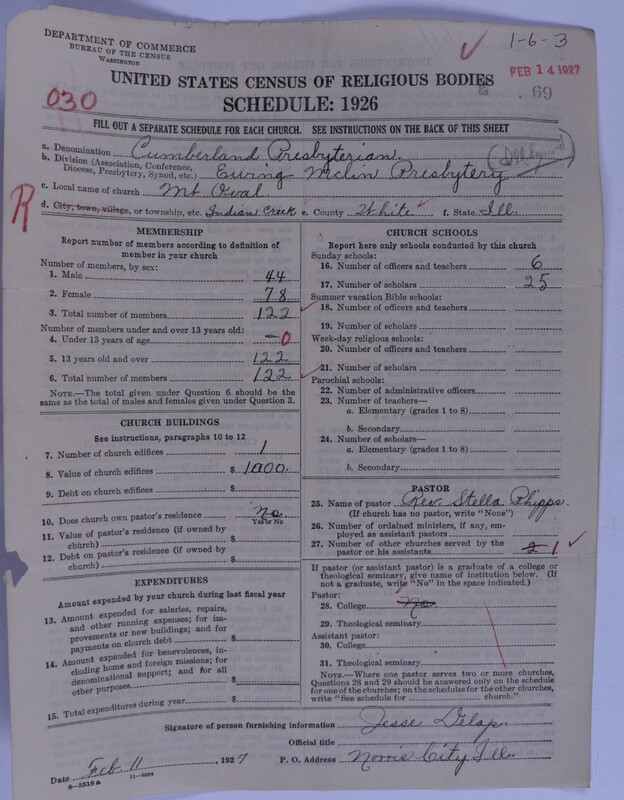 DEPARTMENT OF COMMERCE
BUREAU OF THE CENSUS
WASHINGTON
1-6-3
FEB 14 1927
69
030
UNITED STATES CENSUS OF RELIGIOUS BODIES
SCHEDULE: 1926
FILL OUT A SEPARATE SCHEDULE FOR EACH CHURCH. SEE INSTRUCTIONS ON THE BACK OF THIS SHEET
a. Denomination Cumberland Presbyterian
b. Division (Association, Conference, Diocese, Presbytery, Synod, etc.) Ewing Mclin Presbytery
c. Local name of church Mt Oval
R
d. City, town, village, or township, etc. Indian Creek e. County White f. State Ill.
MEMBERSHIP
Report number of members according to definition of
member in your church
Number of members, by sex:
1. Male 44
2. Female 78
3. Total number of members 122
Number of members under and over 13 years old:
4. Under 13 years of age 0
5. 13 years old and over 122
6. Total number of members 122
NOTE.—The total given under Question 6 should be the
same as the total of males and females given under Question 3.
CHURCH BUILDINGS
See instructions, paragraphs 10 to 12
7. Number of church edifices 1
8. Value of church edifices $ 1000.
9. Debt on church edifices $
10. Does church own pastor's residence No
Yes or No
11. Value of pastor's residence (if owned by
church) $
12. Debt on pastor's residence (if owned by
church) $
EXPENDITURES
Amount expended by your church during last fiscal year
13. Amount expended for salaries, repairs,
and other running expenses; for im-
provements or new buildings; and for
payments on church debt $
14. Amount expended for benevolences, in-
cluding home and foreign missions; for
denominational support; and for all
other purposes $
15. Total expenditures during year $
CHURCH SCHOOLS
Report here only schools conducted by this church
Sunday schools:
16. Number of officers and teachers 6
17. Number of scholars 25
Summer vacation Bible schools:
18. Number of officers and teachers
19. Number of scholars
Week-day religious schools:
20. Number of officers and teachers
21. Number of scholars
Parochial schools:
22. Number of administrative officers
23. Number of teachers—
a. Elementary (grades 1 to 8)
b. Secondary
24. Number of scholars—
a. Elementary (grades 1 to 8)
b. Secondary
PASTOR
25. Name of pastor Rev. Stella Phipps.
(If church has no pastor, write "None")
26. Number of ordained ministers, if any, em-
ployed as assistant pastors
27. Number of other churches served by the
pastor or his assistants 2 1
If pastor (or assistant pastor) is a graduate of a college or
theological seminary, give name of institution below. (If
not a graduate, write "No" in the space indicated.)
Pastor:
28. College No
29. Theological seminary
Assistant pastor:
30. College
31. Theological seminary
NOTE.—Where one pastor serves two or more churches,
Questions 28 and 29 should be answered only on the schedule
for one of the churches; on the schedules for the other churches,
write "See schedule for church."
Signature of person furnishing information Jesse Delap.
Official title
Date Feb. 11, 1927 P. O. Address Norris City Ill.
8-5518a 11-9034